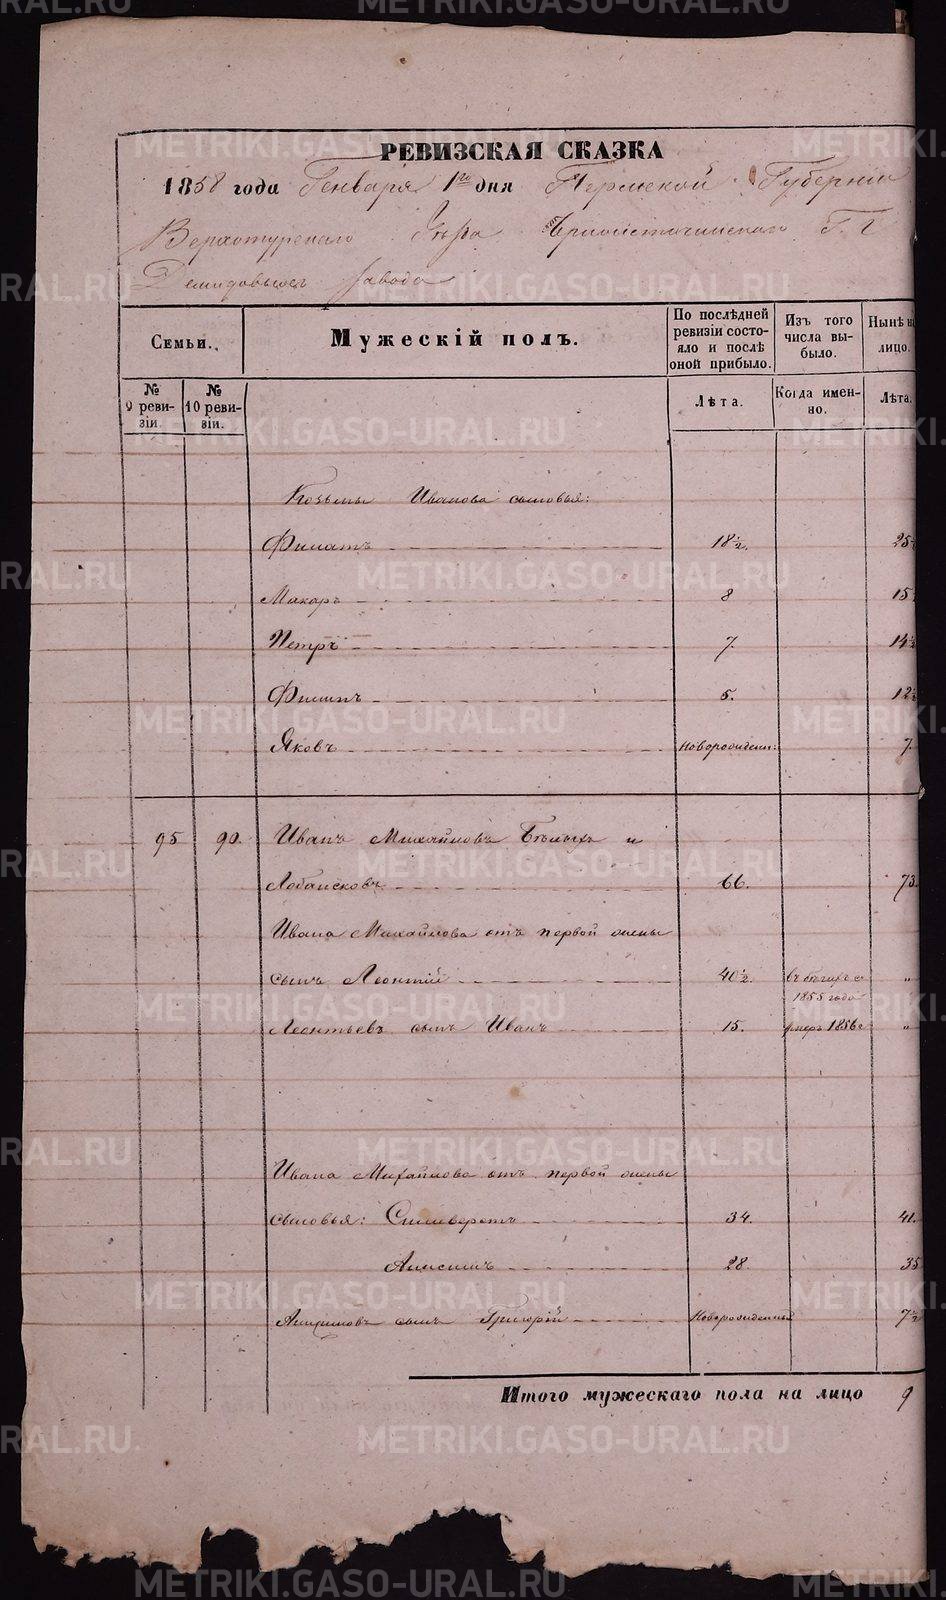 РЕВИЗСКАЯ СКАЗКА
1858 года Генваря 1го дня Пермской Губернии
Верхотурскаго Уѣзда Черноисточинскаго Г. Г.
Демидовыхъ завода
Семьи.
Мужескій полъ.
По послѣдней ревизіи состояло и послѣ оной прибыло.
Изъ того числа выбыло.
Нынѣ на лицо.
№ 9 ревизіи.
№ 10 ревизіи.
Лѣта.
Когда именно.
Лѣта.
Козьмы Иванова сыновья:
Филатъ 18½. 25½
Макаръ 8 15½
Петръ 7. 14½
Филипъ 5. 12½
Яковъ новорожден: 7.
95 90. Иванъ Михайловъ Бѣлыхъ и
Лобансковъ 66. 73.
Ивана Михайлова отъ первой жены
сынъ Леонтій 40½. въ бѣгахъ съ 1855 года "
Леонтьевъ сынъ Иванъ 15. умеръ 1856 г "
Ивана Михайлова отъ первой жены
сыновья: Сильверстъ 34. 41.
28. 35
сынъ Григорій Новорожденный 7½
Итого мужескаго пола на лицо 9
METRIKI.GASO-URAL.RU